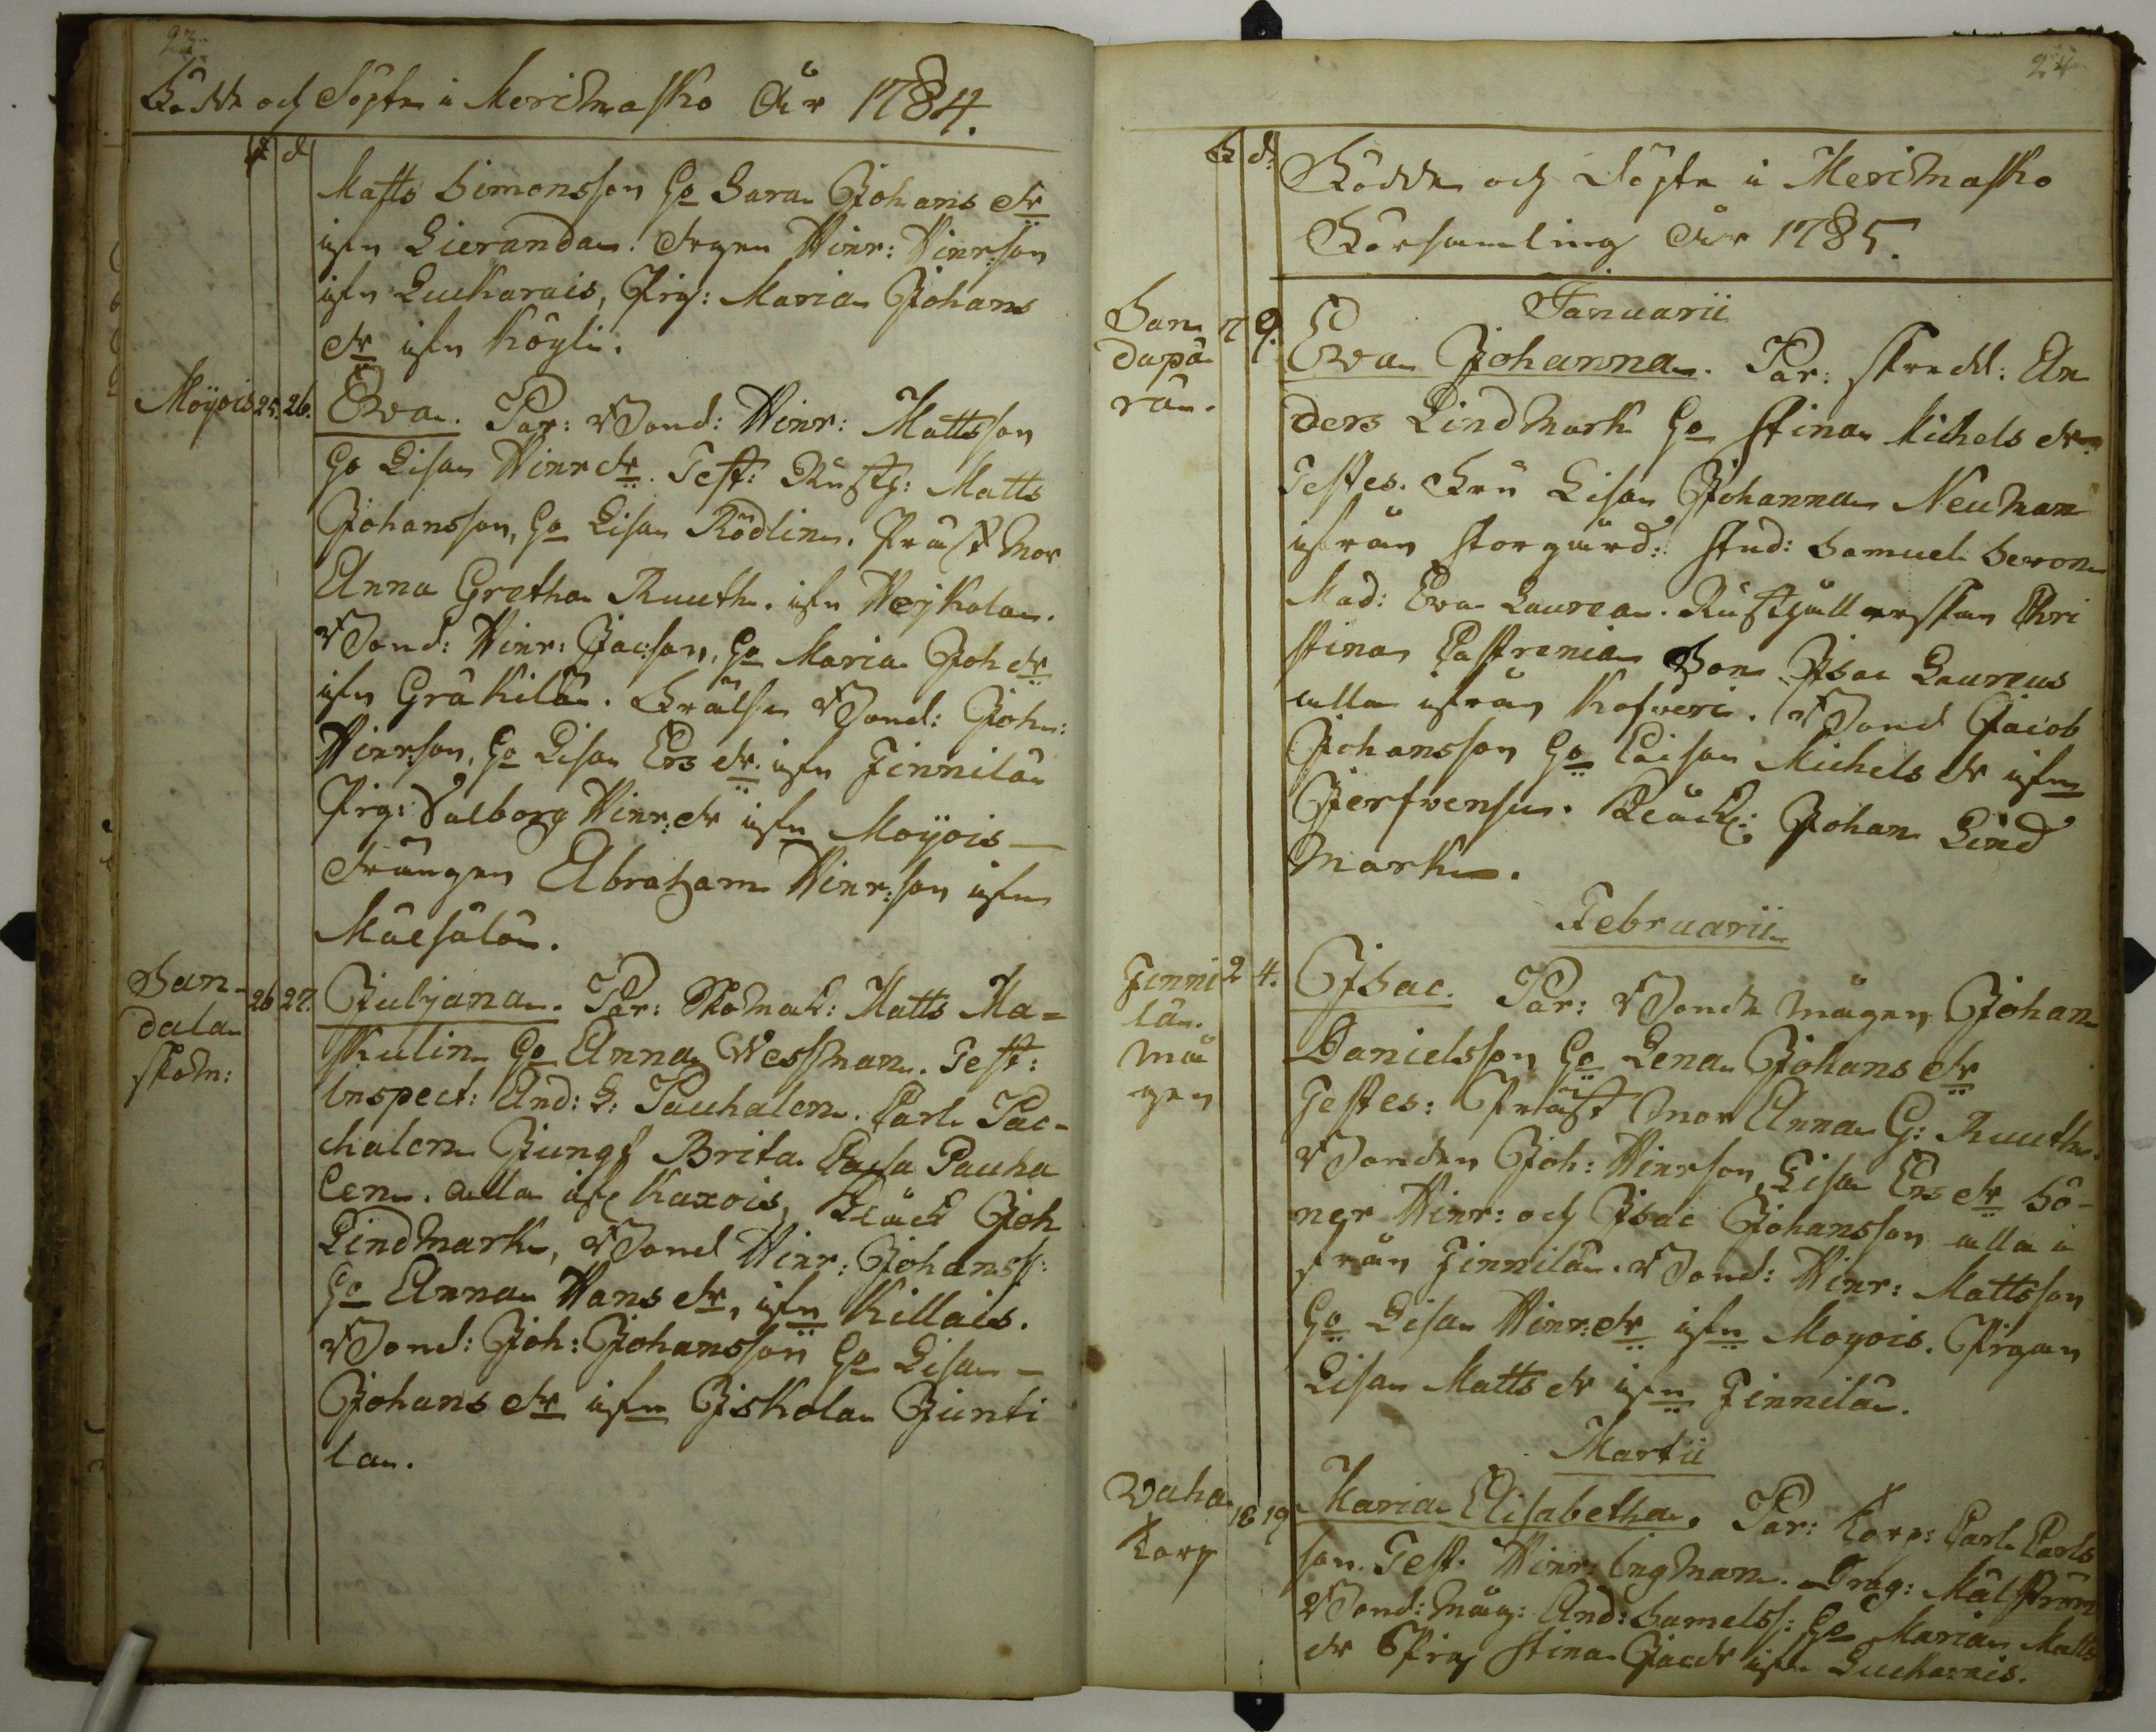 23.
Född och Döpte i Merimasko År 1784.
f d
Matts Simonsson Ho Sara Johans dr
ifrn Lieranda. Drgen Hinr: Hinrson
ifrn Luckarais, Pig: Maria Johans
dr ifrn Köyli.
Moÿois 25. 26. Eva. Par: Bond: Hinr: Mattsson
Ho Lisa Hinr dr. Test: Rusth: Matts
Johansson, Ho Lisa Rödlin. Prästmor
Anna Gretha Ruuth. ifrn Heikola.
Bond: Hinr: Jacson, Ho Maria Joh dr
ifrn Gråkilä. Frälse Bond: Joh:
Hinrson, Ho Lisa Ers dr. ifrn Finnilä
Pig: Valborg Hinr: dr ifrn Moÿois
Drängen Abraham Hinr:son ifrn
Maisälä.
San- 26 27. Juliana. Par: Skomak: Matts Ma=
dala skulin Ho Anna Wessman. Test:
skom: Inspect: And: G: Pachalen. Carl Pac-
halen Jungf Brita Caisa Pacha
len. alla ifr Kaxois, Klåck Joh
Lindmark, Bond Hinr: Johanss:
Ho Anna Hans dr, ifrn Killais.
Bond: Joh: Johansson Ho Lisa
Johans dr ifrn Iskola Junti
la.
24
F d:
Födde och Döpte i Merimasko
Församling År 1785.
Januarii
San 7 9. Eva Johanna. Par: skredd: An
dapä ders Lindmark Ho Stina Michels dr
rä. Testes. Fru Lisa Johanna Neuman
ifrån Storgård: Stud: Samuel Seron
Mad: Eva Laurea. Rusthållerskan Chri
stina Castrenia Son Isac Laureus
alla ifrån Kofveri. Bond Jacob
Johansson Ho Caisa Michels dr ifrn
Jerfvensu. Klåck: Johan Lind
mark.
Februarii
Finni 2 4. Isac. Par: Bonde mågen Johan
lä. Danielsson Ho Lena Johans dr
må Testes: Präst mor Anna G: Ruuth.
gen Bonden Joh: Hinrson, Lisa Ers dr Sö-
ner Hinr: och Isac Johansson alla i
från Finnilä. Bond: Hinr: Mattsson
Ho Lisa Hinr: dr ifrn Moyois. Pigan
Lisa Matts dr ifrn Finnilä.
Martii
Waha 18 19 Maria Elisabetha. Par: Korp: Carl Carls
Korp son. Test. Hinr: Engman. Drag: Målström
Bond: måg: And: Samelss: Ho Maria Matts
dr Pig Stina Jacdr ifrn Luckarais.